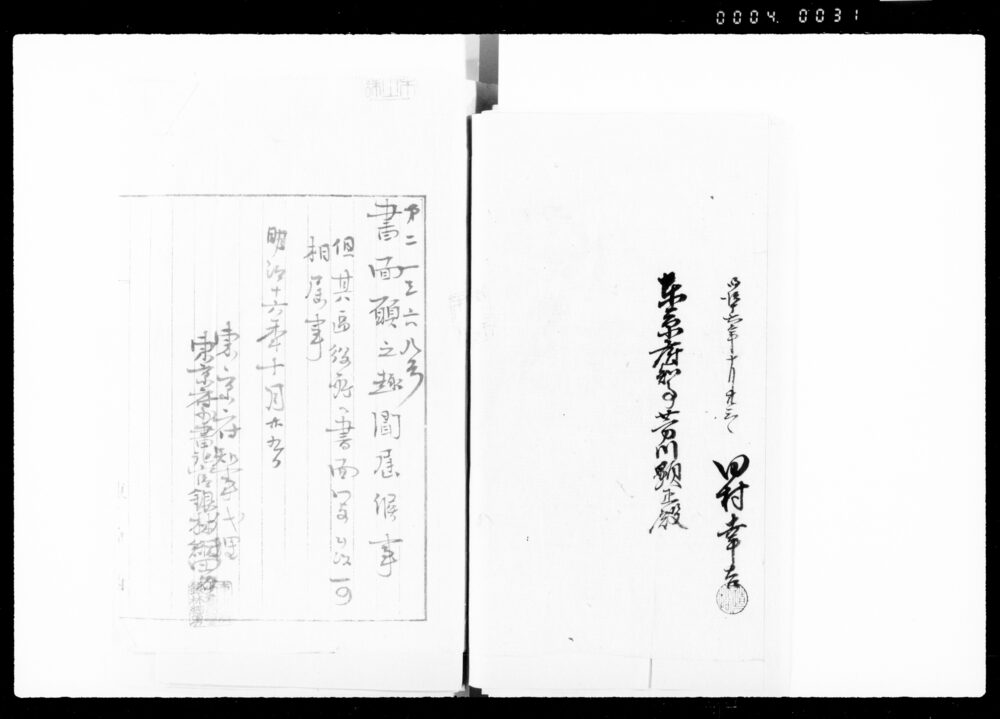 0004 0031
明治十六年十月廿三日
田村幸吉
東京府知事芳川顕正殿
第二一三六八号
書面願之趣聞届候事
但其区役所ヘ書面写ヲ以可
相届事
明治十六年十月廿九日
東京府知事代理
東京府書記官銀林綱男